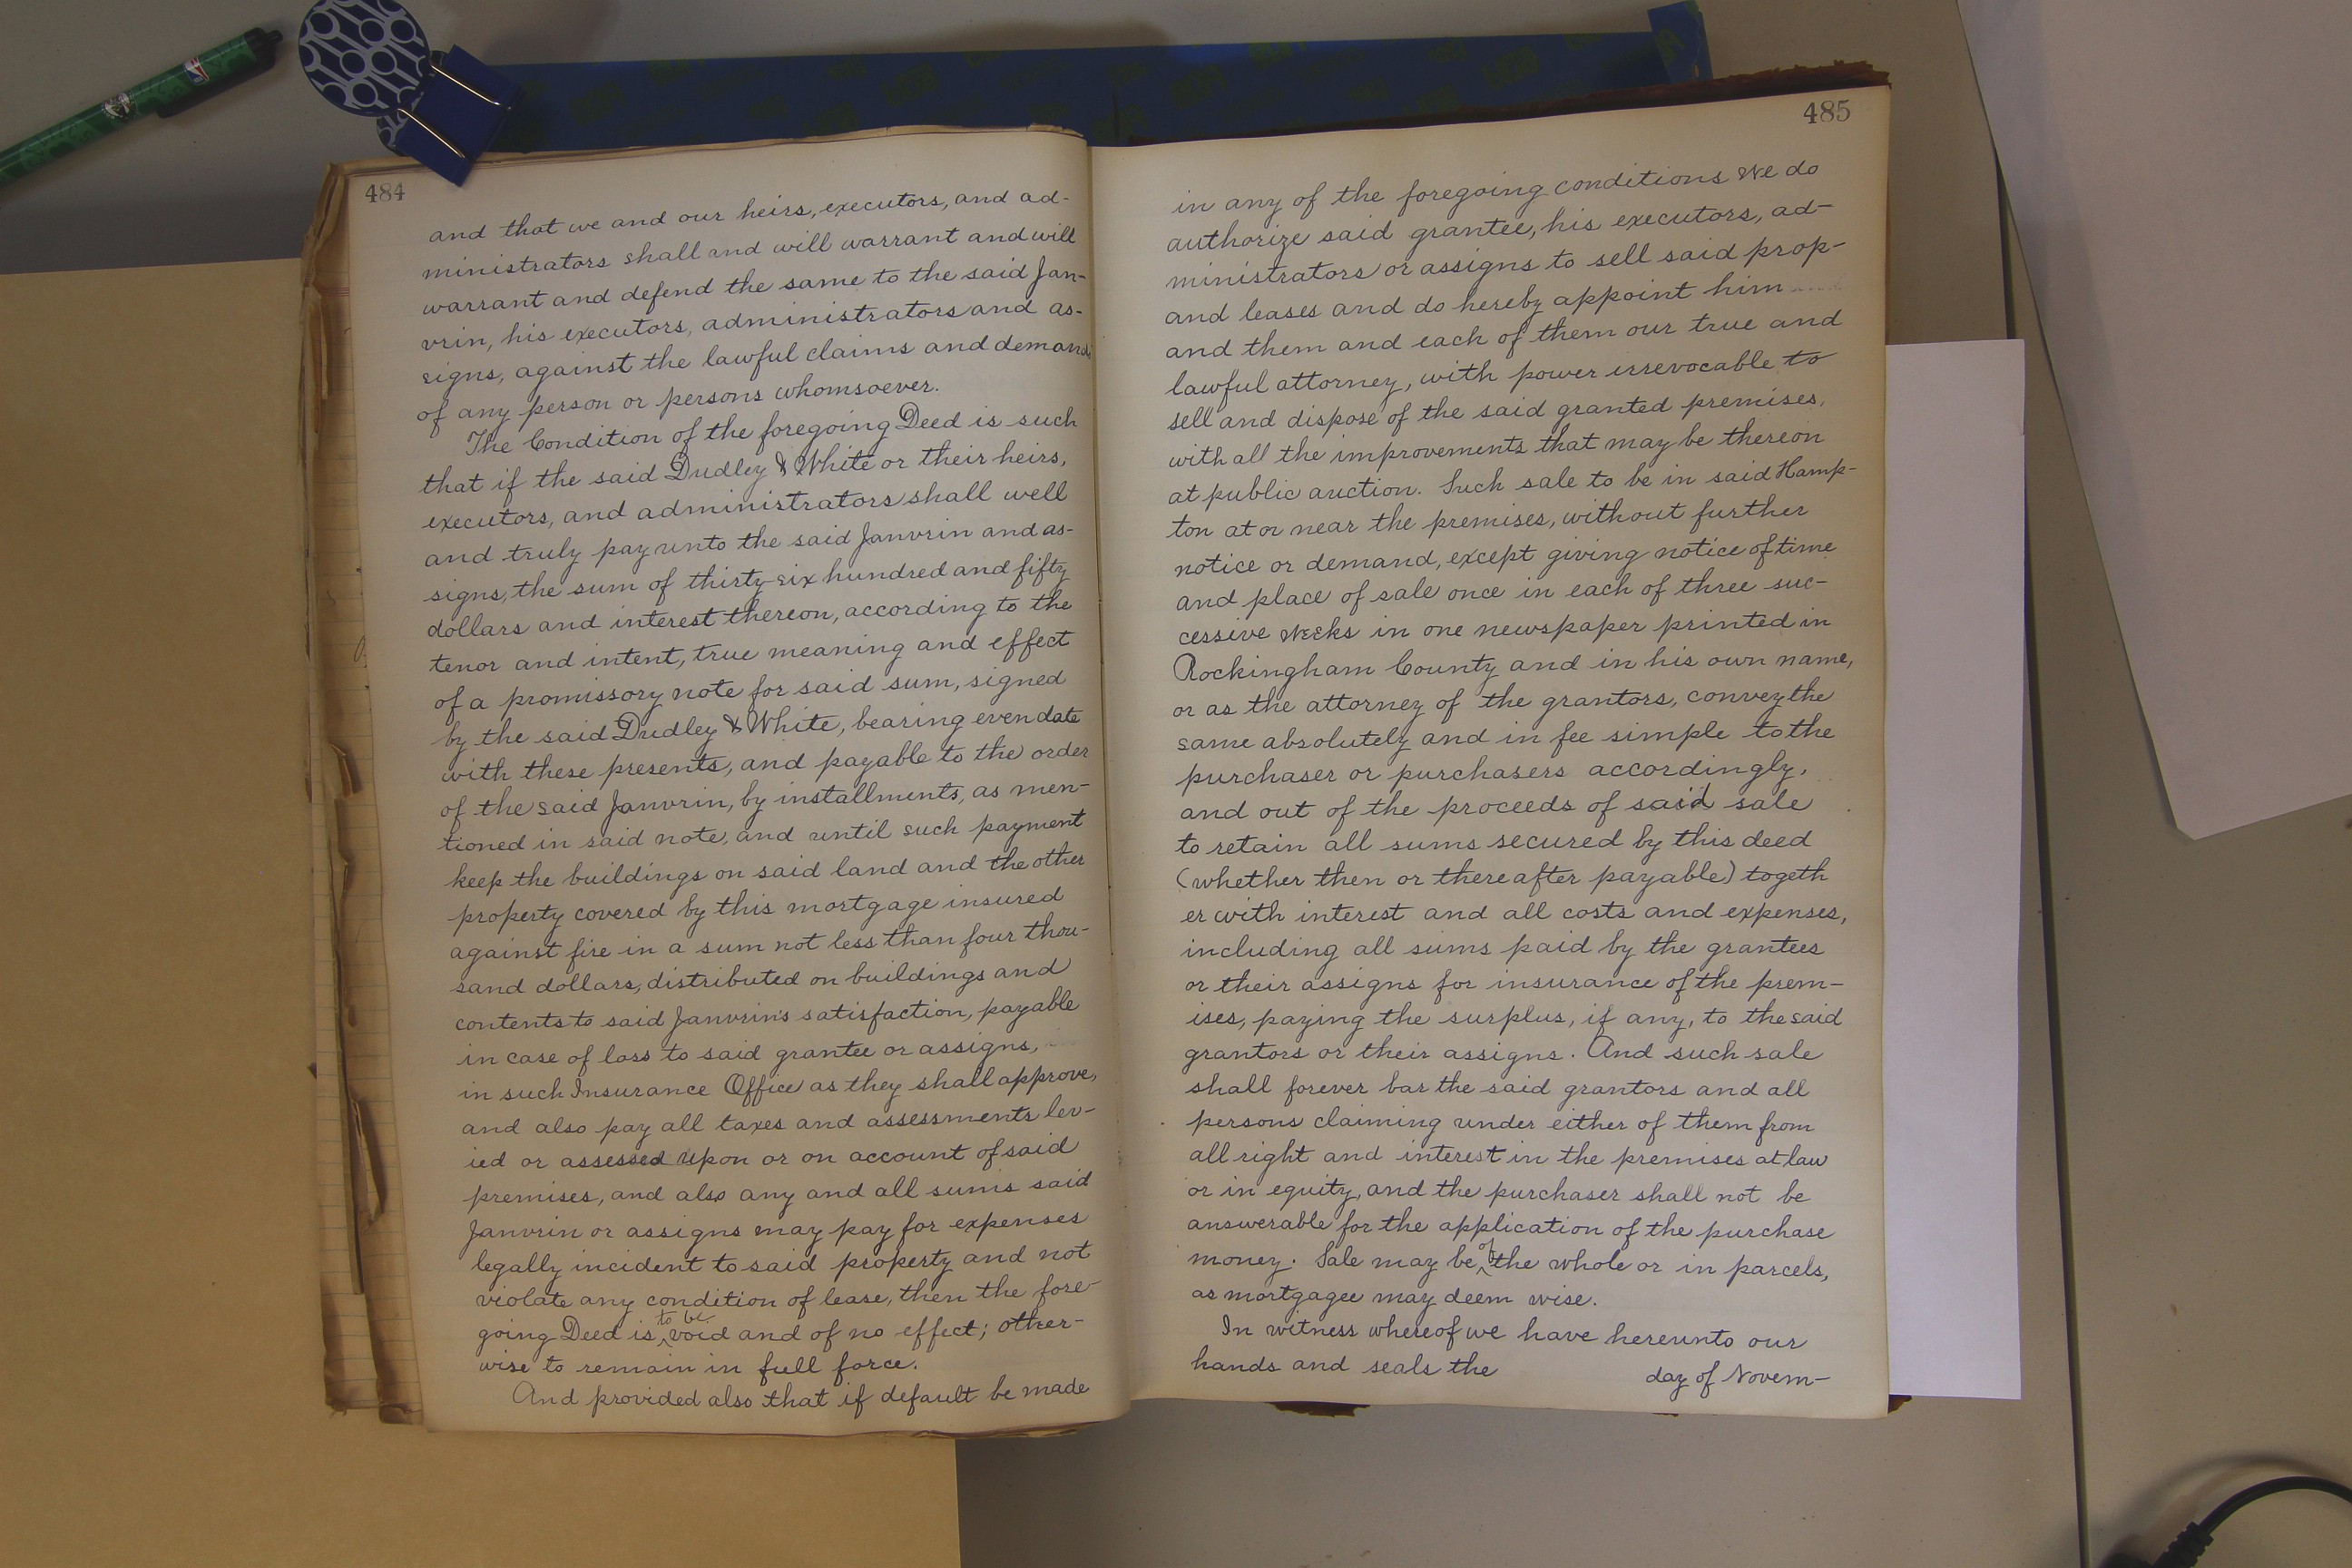 484
and that we and our heirs, executors, and ad-
ministrators shall and will warrant and will
warrant and defend the same to the said Jan-
vrin, his executors, administrators and as-
signs, against the lawful claims and demands
of any person or persons whomsoever.
The Condition of the foregoing Deed is such
that if the said Dudley & White or their heirs,
executors, and administrators shall well
and truly pay unto the said Janvrin and as-
signs, the sum of thirty-six hundred and fifty
dollars and interest thereon, according to the
tenor and intent, true meaning and effect
of a promissory note for said sum, signed
by the said Dudley & White, bearing even date
with these presents, and payable to the order
of the said Janvrin, by installments, as men-
tioned in said note, and until such payment
keep the buildings on said land and the other
property covered by this mortgage insured
against fire in a sum not less than four thou-
sand dollars, distributed on buildings and
contents to said Janvrin's satisfaction, payable
in case of loss to said grantee or assigns,
in such Insurance Office as they shall approve,
and also pay all taxes and assessments lev-
ied or assessed upon or on account of said
premises, and also any and all sums said
Janvrin or assigns may pay for expenses
legally incident to said property and not
violate any condition of lease, then the fore-
going Deed is to be void and of no effect; other-
wise to remain in full force.
And provided also that if default be made
485
in any of the foregoing conditions we do
authorize said grantee, his executors, ad-
ministrators or assigns to sell said prop-
and leases and do hereby appoint him
and them and each of them our true and
lawful attorney, with power irrevocable to
sell and dispose of the said granted premises,
with all the improvements that may be thereon
at public auction. Such sale to be in said Hamp-
ton at or near the premises, without further
notice or demand, except giving notice of time
and place of sale once in each of three suc-
cessive weeks in one newspaper printed in
Rockingham County and in his own name,
or as the attorney of the grantors, convey the
same absolutely and in fee simple to the
purchaser or purchasers accordingly,
and out of the proceeds of said sale
to retain all sums secured by this deed
(whether then or thereafter payable) togeth
er with interest and all costs and expenses,
including all sums paid by the grantees
or their assigns for insurance of the prem-
ises, paying the surplus, if any, to the said
grantors or their assigns. And such sale
shall forever bar the said grantors and all
persons claiming under either of them from
all right and interest in the premises at law
or in equity, and the purchaser shall not be
answerable for the application of the purchase
money. Sale may be of the whole or in parcels,
as mortgagee may deem wise.
In witness whereof we have hereunto our
hands and seals the day of Novem-